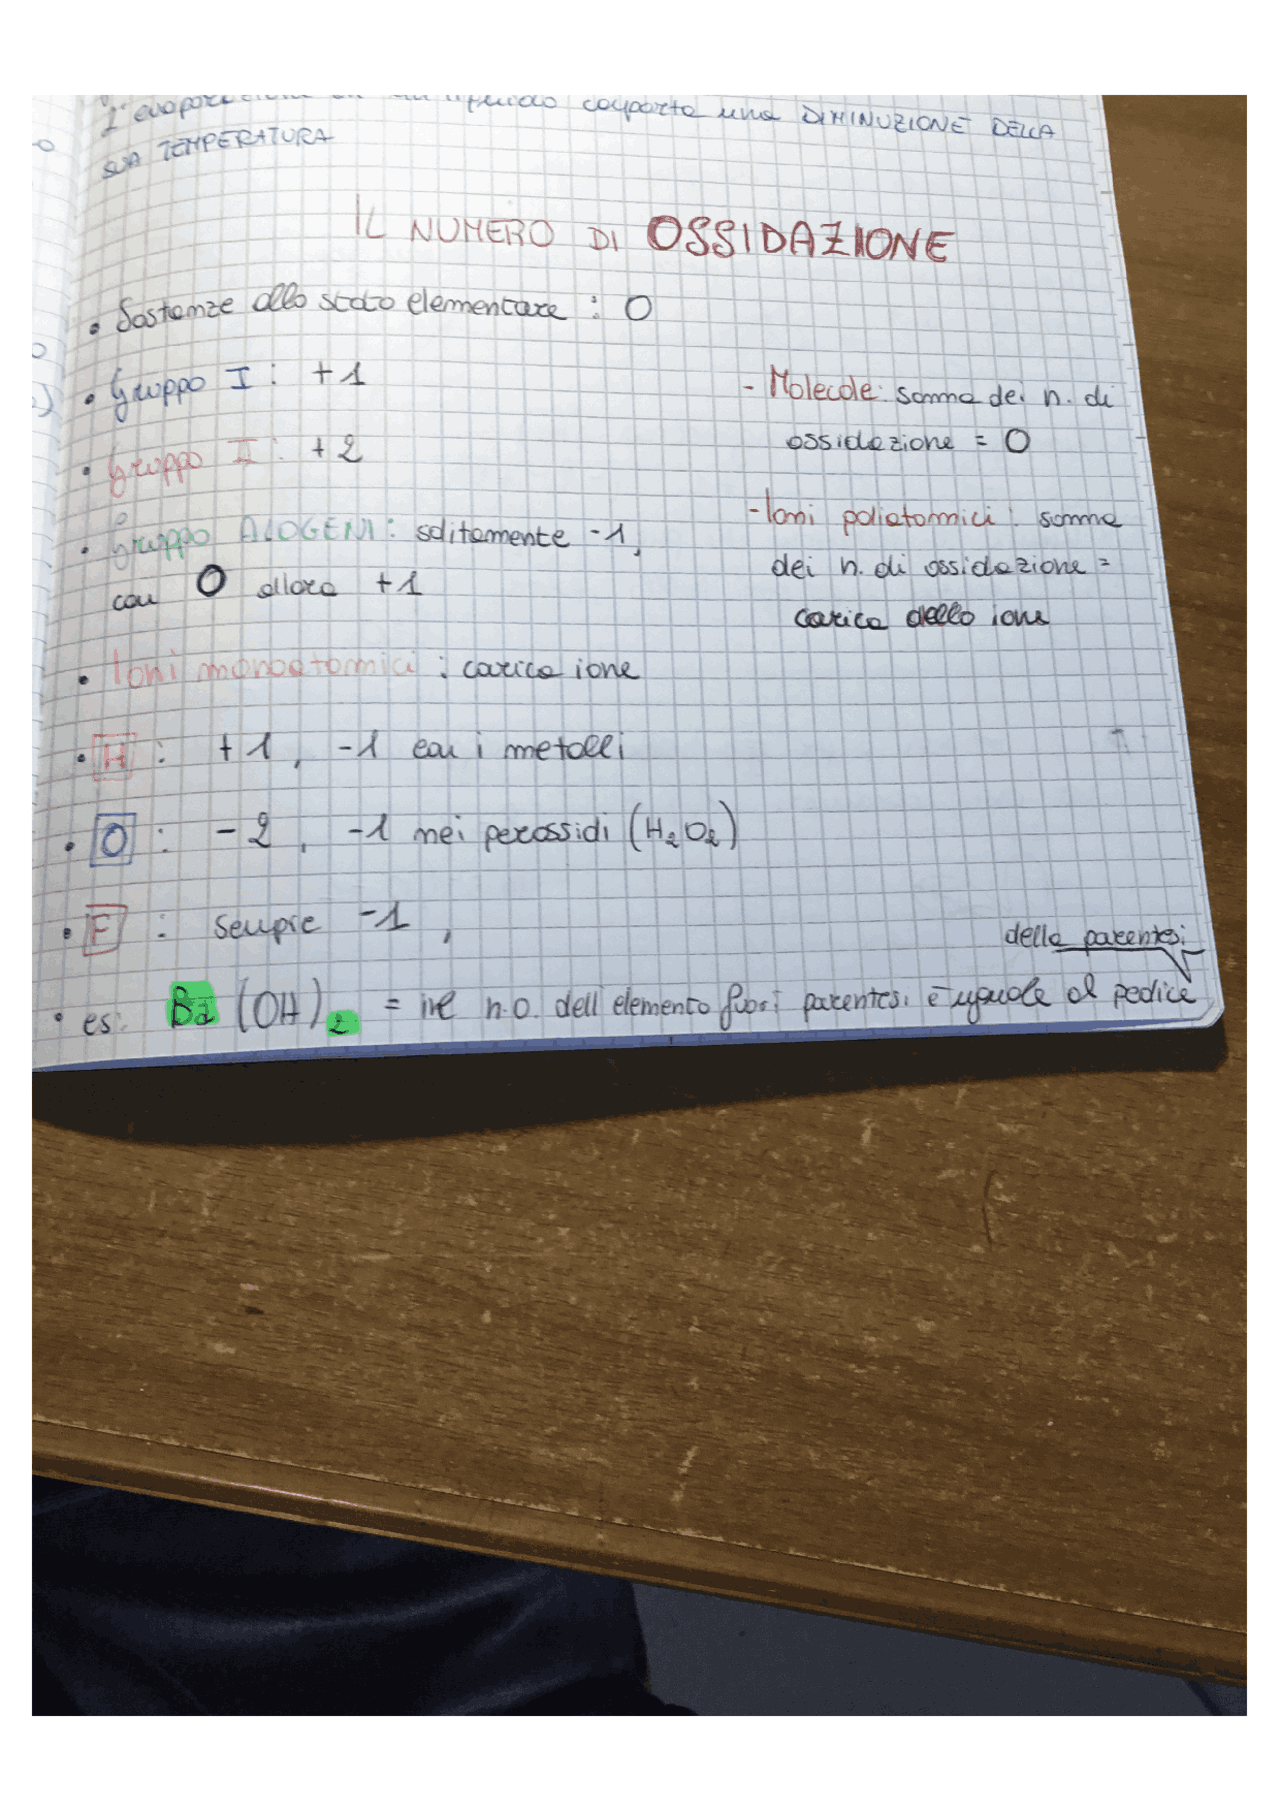 L'evaporazione di un liquido comporta una DIMINUZIONE DELLA
SUA TEMPERATURA
IL NUMERO DI OSSIDAZIONE
• Sostanze allo stato elementare : O
• Gruppo I : +1
• Gruppo II : +2
• Gruppo ALOGENI : solitamente -1,
con O allora +1
• Ioni monoatomici : carica ione
- Molecole: somma dei n. di
ossidazione = O
- Ioni poliatomici : somma
dei n. di ossidazione =
carica dello ione
• H : +1, -1 con i metalli
• O : -2, -1 nei perossidi (H₂O₂)
• F : sempre -1,
della parentesi
• es: Ba(OH)₂ = il n.o. dell'elemento fuori parentesi è uguale al pedice